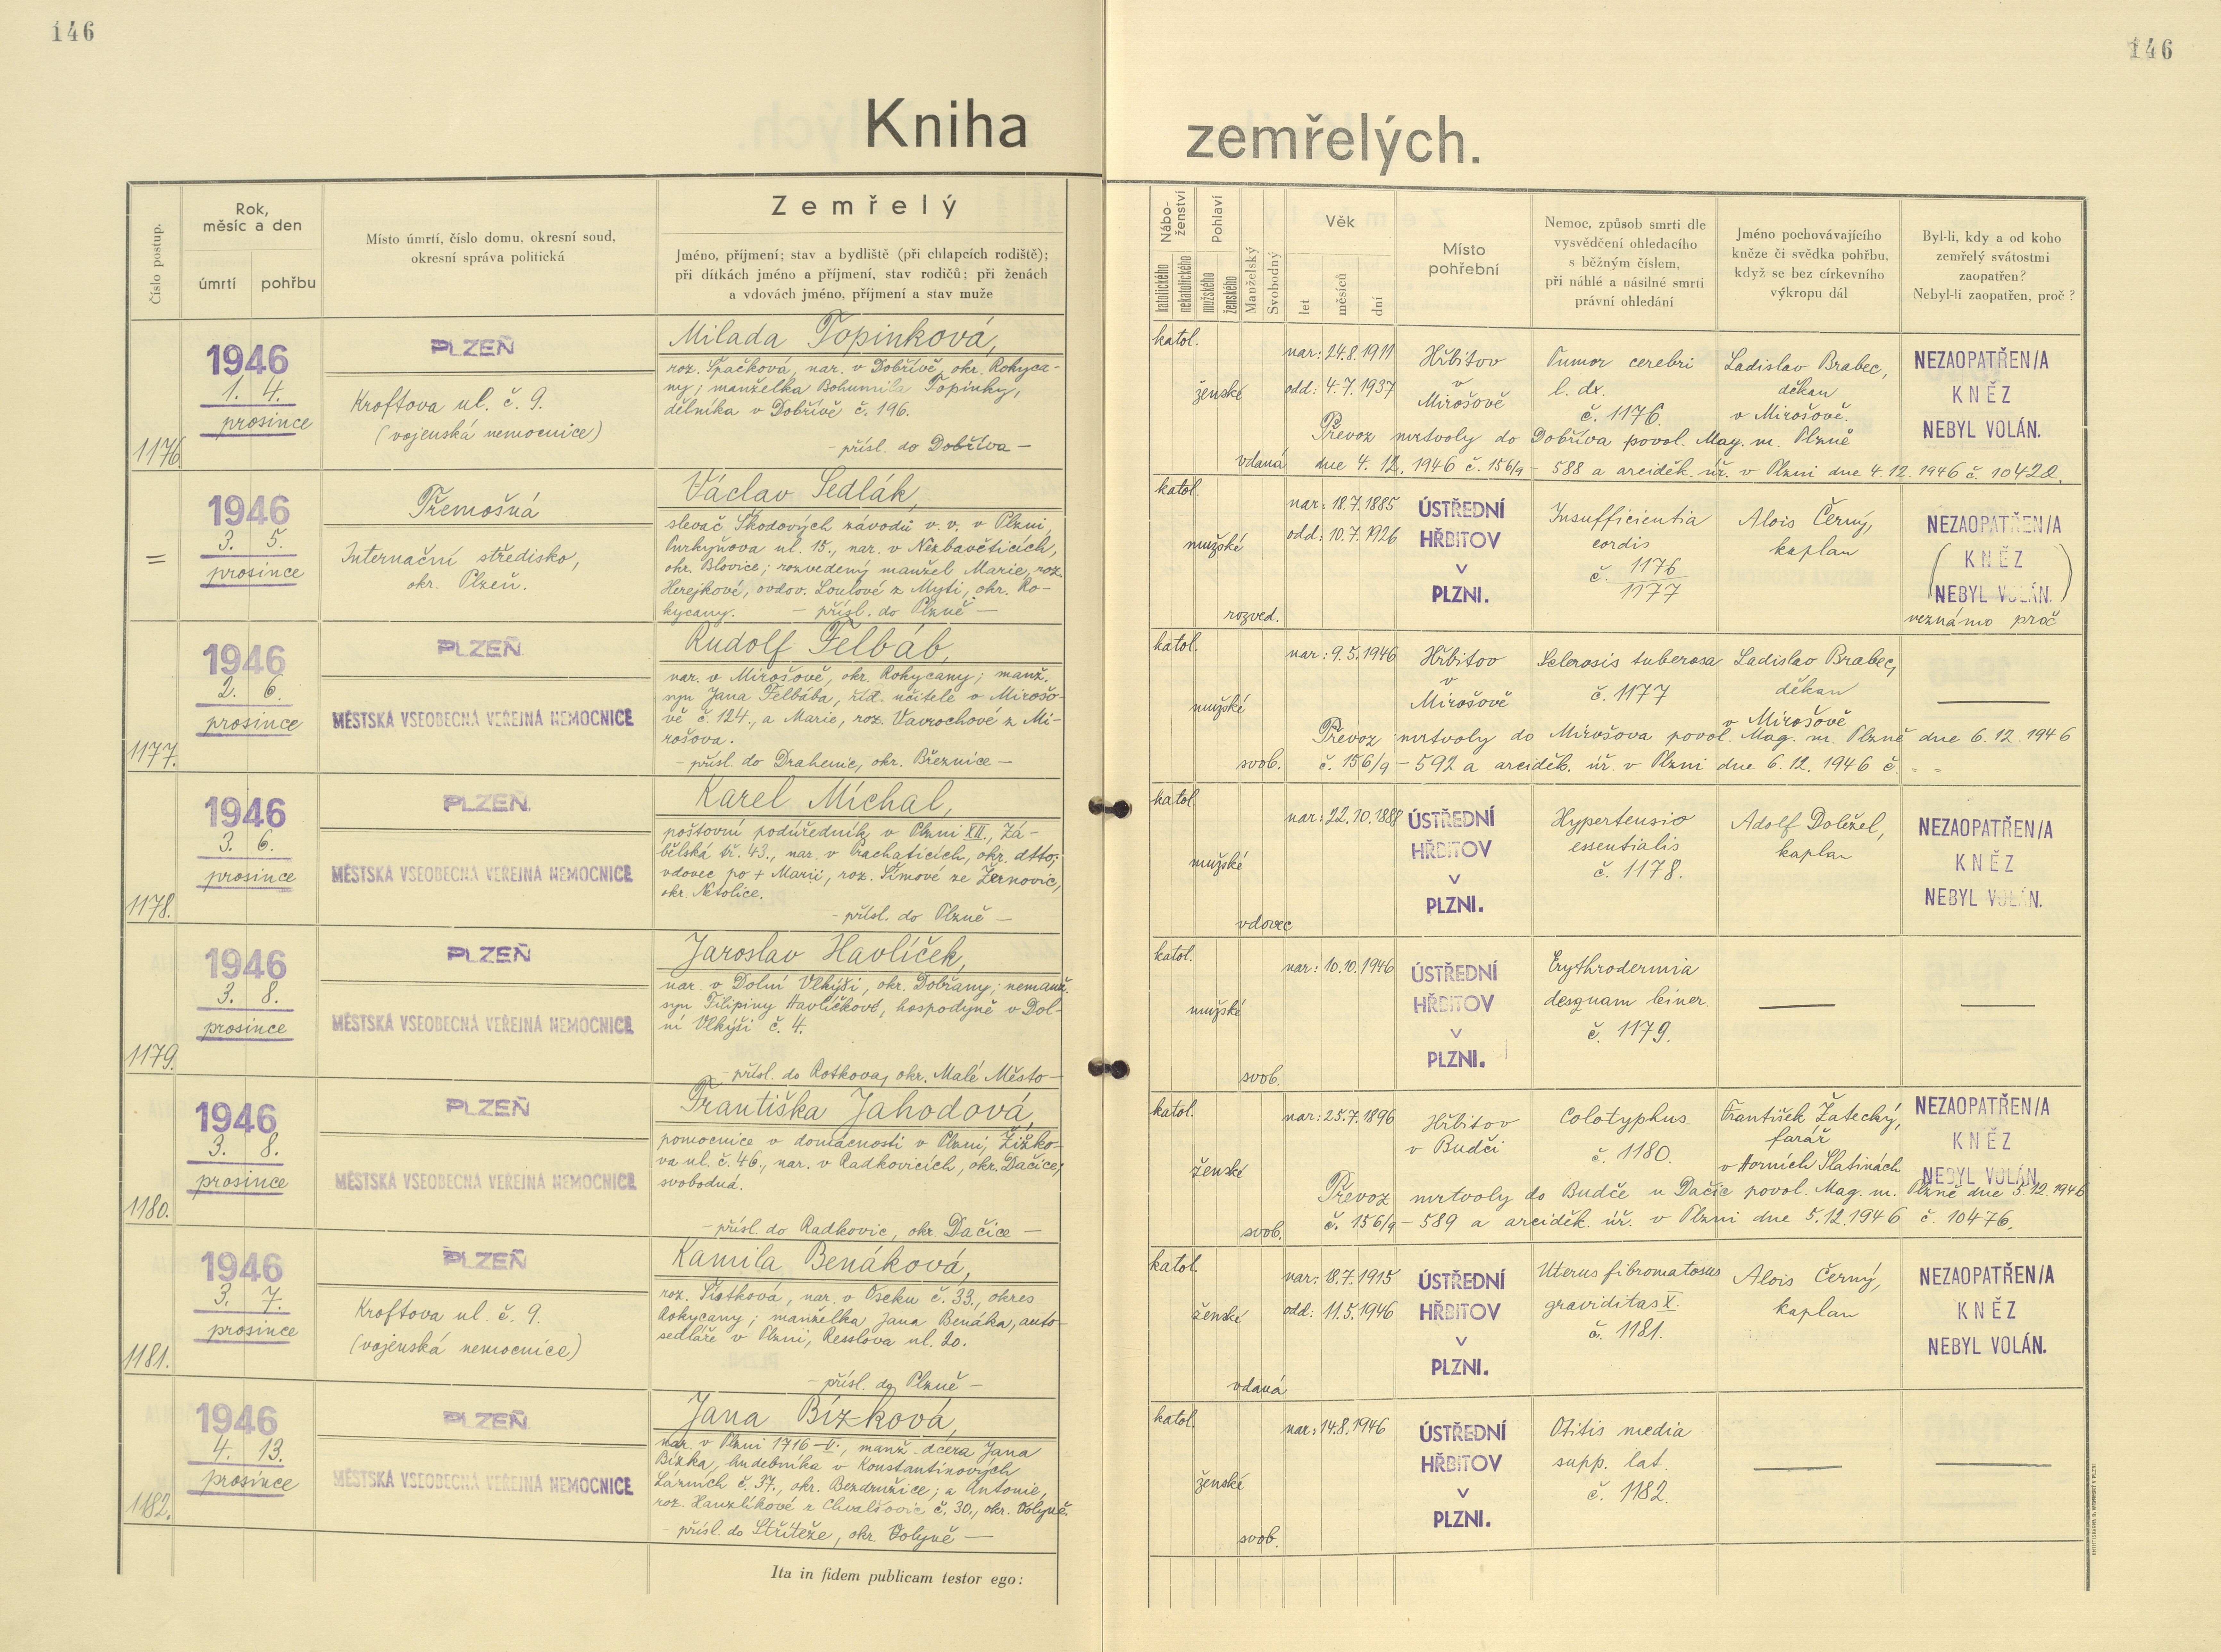 146
146
Kniha
zemřelých.
Číslo postup.
Rok,
měsíc a den
úmrtí
pohřbu
Místo úmrtí, číslo domu, okresní soud,
okresní správa politická
Zemřelý
Jméno, příjmení; stav a bydliště (při chlapcích rodiště);
při dítkách jméno a příjmení, stav rodičů; při ženách
a vdovách jméno, příjmení a stav muže
Nábo-
ženství
katolického
nekatolického
Pohlaví
mužského
ženského
Manželský
Svobodný
Věk
let
měsíců
dní
Místo
pohřební
Nemoc, způsob smrti dle
vysvědčení ohledacího
s běžným číslem,
při náhlé a násilné smrti
právní ohledání
Jméno pochovávajícího
kněze či svědka pohřbu,
když se bez církevního
výkropu dál
Byl-li, kdy a od koho
zemřelý svátostmi
zaopatřen?
Nebyl-li zaopatřen, proč?
1176.
1946
1. 4.
prosince
PLZEŇ
Kroftova ul. č. 9.
(vojenská nemocnice)
Milada Topinková,
roz. Špačková, nar. v Dobřívě, okr. Rokyca-
ny; manželka Bohumila Topinky,
dělníka v Dobřívě č. 196.
- přísl. do Dobříva -
katol.
ženské
vdaná
nar: 24.8.1911
odd: 4.7.1937
Hřbitov
v
Mirošově
Tumor cerebri
l. dx.
č. 1176.
Ladislav Brabec,
děkan
v Mirošově.
NEZAOPATŘEN/A
KNĚZ
NEBYL VOLÁN.
Převoz mrtvoly do Dobříva povol. Mag. m. Plzně
dne 4. 12. 1946 č. 156/9 - 588 a arciděk. úř. v Plzni dne 4. 12. 1946 č. 10420.
=
1946
3. 5.
prosince
Třemošná
Internační středisko,
okr. Plzeň.
Václav Sedlák,
slevač Škodových závodů v. v. v Plzni,
Purkyňova ul. 15., nar. v Nezbavěticích,
okr. Blovice; rozvedený manžel Marie, roz.
Herejkové, ovdov. Loulové z Mýti, okr. Ro-
kycany. - přísl. do Plzně -
katol.
mužské
rozved.
nar: 18.7.1885
odd: 10.7.1926
ÚSTŘEDNÍ
HŘBITOV
V
PLZNI.
Insufficientia
cordis
č. 1176
1177
Alois Černý,
kaplan
NEZAOPATŘEN/A
(KNĚZ
NEBYL VOLÁN.)
neznámo proč
1177.
1946
2. 6.
prosince
PLZEŇ
MĚSTSKÁ VŠEOBECNÁ VEŘEJNÁ NEMOCNICE
Rudolf Felbáb,
nar. v Mirošově, okr. Rokycany; manž.
syn Jana Felbába, říd. učitele v Mirošo-
vě č. 124., a Marie, roz. Vavrochové z Mi-
rošova.
- přísl. do Drahenic, okr. Březnice -
katol.
mužské
svob.
nar: 9.5.1946
Hřbitov
v
Mirošově
Sclerosis tuberosa
č. 1177
Ladislav Brabec,
děkan
v Mirošově
Převoz mrtvoly do Mirošova povol. Mag. m. Plzně dne 6.12.1946
č. 156/9 - 592 a arciděk. úř. v Plzni dne 6.12.1946 č. - -
1178.
1946
3. 6.
prosince
PLZEŇ
MĚSTSKÁ VŠEOBECNÁ VEŘEJNÁ NEMOCNICE
Karel Míchal,
poštovní podúředník v Plzni XII., Zá-
bělská tř. 43., nar. v Prachaticích, okr. dtto;
vdovec po + Marii, roz. Šímové ze Žernovic,
okr. Netolice.
- přísl. do Plzně -
katol.
mužské
vdovec
nar: 22.10.1888
ÚSTŘEDNÍ
HŘBITOV
V
PLZNI.
Hypertensio
essentialis
č. 1178.
Adolf Doležel,
kaplan
NEZAOPATŘEN/A
KNĚZ
NEBYL VOLÁN.
1179.
1946
3. 8.
prosince
PLZEŇ
MĚSTSKÁ VŠEOBECNÁ VEŘEJNÁ NEMOCNICE
Jaroslav Havlíček,
nar. v Dolní Vlkýši, okr. Dobřany; nemanž.
syn Filipiny Havlíčkové, hospodyně v Dol-
ní Vlkýši č. 4.
- přísl. do Rotkova, okr. Malé Město -
katol.
mužské
svob.
nar: 10.10.1946
ÚSTŘEDNÍ
HŘBITOV
V
PLZNI.
Erythrodermia
desquam leiner.
č. 1179.
1180.
1946
3. 8.
prosince
PLZEŇ
MĚSTSKÁ VŠEOBECNÁ VEŘEJNÁ NEMOCNICE
Františka Jahodová,
pomocnice v domácnosti v Plzni, Žižko-
va ul. č. 46., nar. v Radkovicích, okr. Dačice;
svobodná.
- přísl. do Radkovic, okr. Dačice -
katol.
ženské
svob.
nar: 25.7.1896
Hřbitov
v Budči
Colotyphus
č. 1180.
František Žatecký,
farář
v Horních Slatinách
NEZAOPATŘEN/A
KNĚZ
NEBYL VOLÁN.
Převoz mrtvoly do Budče u Dačic povol. Mag. m. Plzně dne 5.12.1946
č. 156/9 - 589 a arciděk. úř. v Plzni dne 5.12.1946 č. 10476.
1181.
1946
3. 7.
prosince
PLZEŇ
Kroftova ul. č. 9.
(vojenská nemocnice)
Kamila Benáková,
roz. Šístková, nar. v Oseku č. 33., okres
Rokycany; manželka Jana Benáka, auto-
sedláře v Plzni, Resslova ul. 20.
- přísl. do Plzně -
katol.
ženské
vdaná
nar: 18.7.1915
odd: 11.5.1946
ÚSTŘEDNÍ
HŘBITOV
V
PLZNI.
Uterus fibromatosus
graviditas X.
č. 1181.
Alois Černý,
kaplan
NEZAOPATŘEN/A
KNĚZ
NEBYL VOLÁN.
1182.
1946
4. 13.
prosince
PLZEŇ
MĚSTSKÁ VŠEOBECNÁ VEŘEJNÁ NEMOCNICE
Jana Bízková,
nar. v Plzni 1716-V., manž. dcera Jana
Bízka, hudebníka v Konstantinových
Lázních č. 37., okr. Bezdružice; a Antonie,
roz. Hanzlíkové z Chvalšovic č. 30., okr. Volyně.
- přísl. do Střítěže, okr. Volyně -
katol.
ženské
svob.
nar: 14.8.1946
ÚSTŘEDNÍ
HŘBITOV
V
PLZNI.
Otitis media
supp. lat.
č. 1182.
Ita in fidem publicam testor ego: